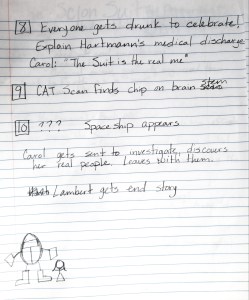 [8] Everyone gets drunk to celebrate!
Explain Hartmann's medical discharge
Carol: "The Suit is the real me"
[9] CAT Scan finds chip on brain stem
[10] ??? Spaceship appears
Carol gets sent to investigate, discovers
her real people. Leaves with them.
Lambert gets end story